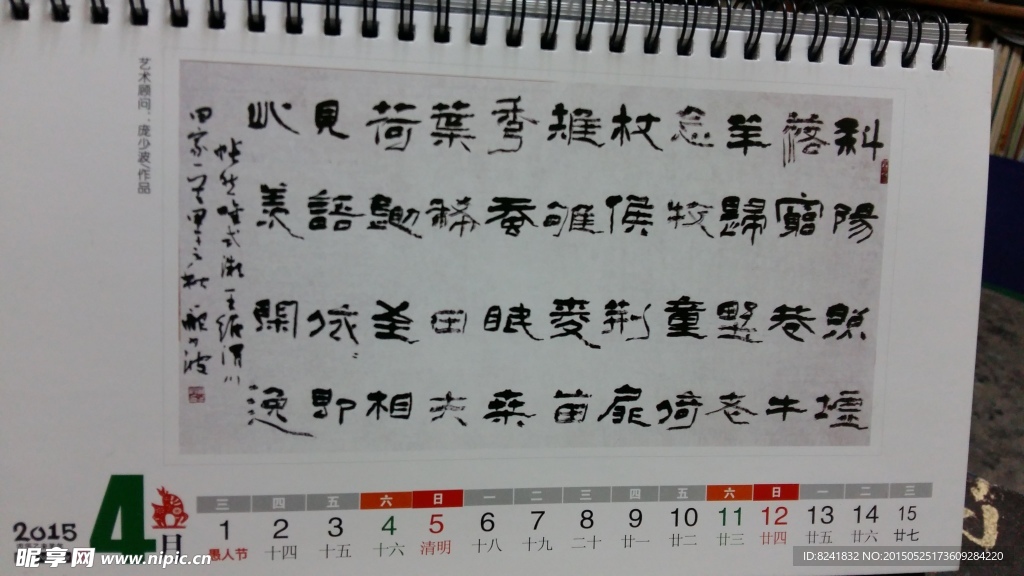 艺术顾问:庞少波作品
斜陽照墟
落窮巷牛
羊歸野老
念牧童倚
杖候荊扉
雉雊麥苗
秀蚕眠桑
葉稀田夫
荷鋤至相
見語依〻即
此羨閑逸
悵然吟式微 王維渭川
田家一首 甲午之秋 龐少波
2015
4月
三 四 五 六 日 一 二 三 四 五 六 日 一 二 三
1 2 3 4 5 6 7 8 9 10 11 12 13 14 15
愚人节 十四 十五 十六 清明 十八 十九 二十 廿一 廿二 廿三 廿四 廿五 廿六 廿七
昵享网 www.nipic.cn
ID:8241832 NO:20150525173609284220